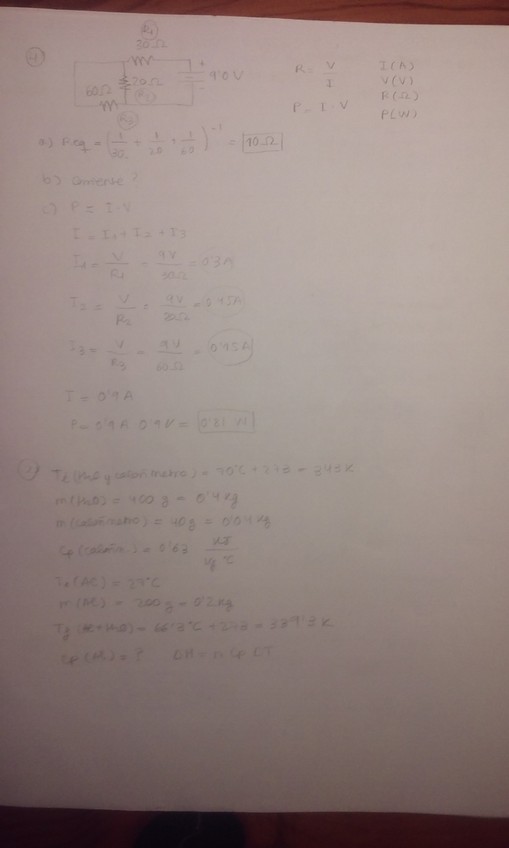 R1
30Ω
4)
60Ω
20Ω
9'0V
R = V/I
I(A)
V(V)
R(Ω)
P = I·V
P(W)
a) Req = (1/30 + 1/20 + 1/60)^-1 = 10Ω
b) Corriente?
c) P = I·V
I = I1 + I2 + I3
I1 = V/R1 = 9V/30Ω = 0'3A
I2 = V/R2 = 9V/20Ω = 0'45A
I3 = V/R3 = 9V/60Ω = 0'15A
I = 0'9A
P = 0'9A 0'9V = 0'81 W
(H2O y calorímetro) = 70°C + 273 = 343K
m(H2O) = 400 g = 0'4 kg
m(calorímetro) = 40g = 0'04 kg
Cp(calorím.) = 0'63 kJ/kg °C
(Al) = 27°C
m(Al) = 200g = 0'2kg
Tf(Al+H2O) = 66'3°C + 273 = 339'3K
Cp(Al) = ? ΔH = n Cp ΔT